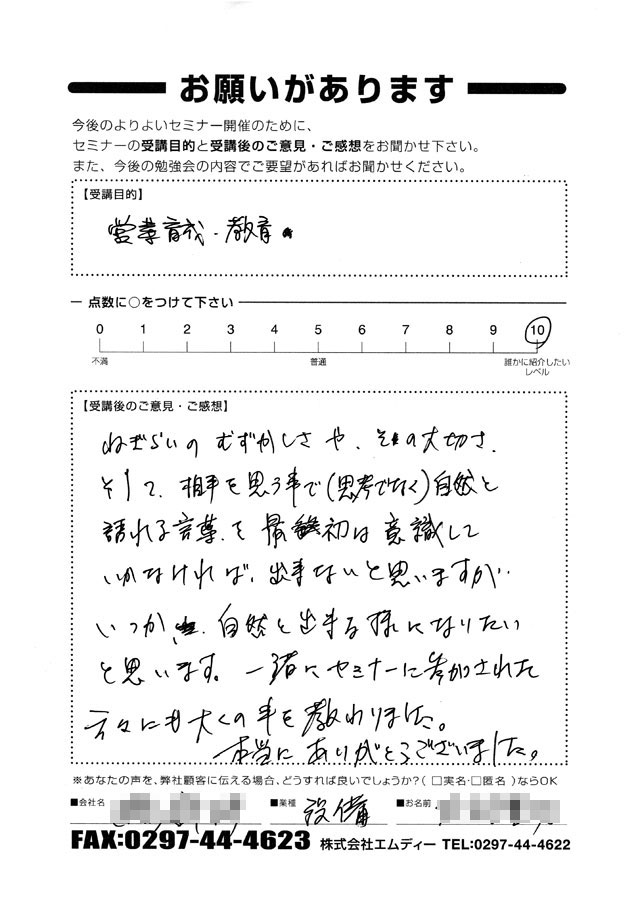 お願いがあります
今後のよりよいセミナー開催のために、
セミナーの受講目的と受講後のご意見・ご感想をお聞かせ下さい。
また、今後の勉強会の内容でご要望があればお聞かせください。
【受講目的】
営業育成・教育
点数に○をつけて下さい
0 1 2 3 4 5 6 7 8 9 10
不満 普通 誰かに紹介したい
レベル
【受講後のご意見・ご感想】
ねぎらいのむずかしさや、その大切さ、
そして、相手を思う事で(思考でなく)自然と
語れる言葉を最初は意識して
いかなければ、出来ないと思いますが、
いつか、自然と出来る様になりたい
と思います。一緒にセミナーに参加された
方々にも大くの事を教わりました。
本当にありがとうございました。
※あなたの声を、弊社顧客に伝える場合、どうすれば良いでしょうか?(□実名・□匿名)ならOK
■会社名 ■業種 設備 ■お名前
FAX:0297-44-4623 株式会社エムディー TEL:0297-44-4622